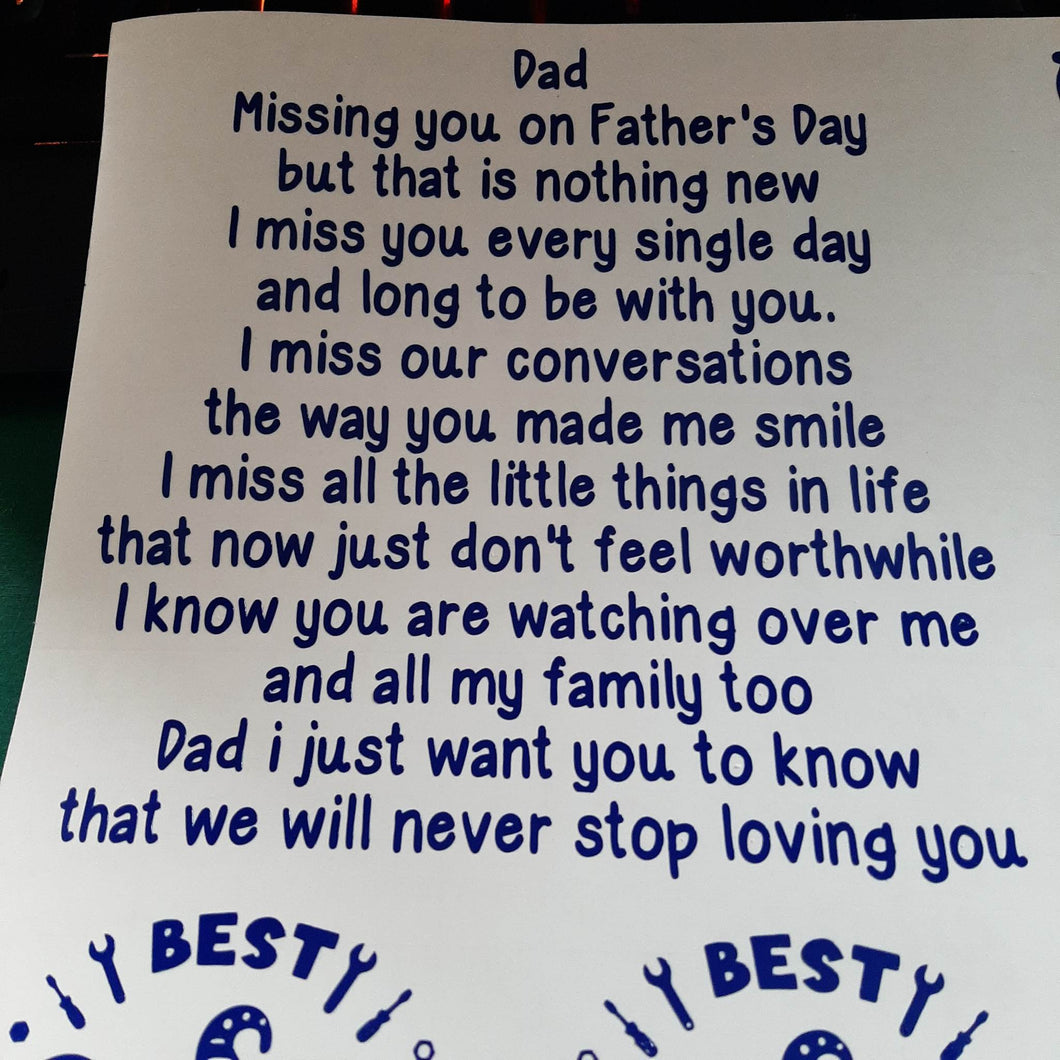 Dad
Missing you on Father's Day
but that is nothing new
I miss you every single day
and long to be with you.
I miss our conversations
the way you made me smile
I miss all the little things in life
that now just don't feel worthwhile
I know you are watching over me
and all my family too
Dad i just want you to know
that we will never stop loving you
BEST
BEST